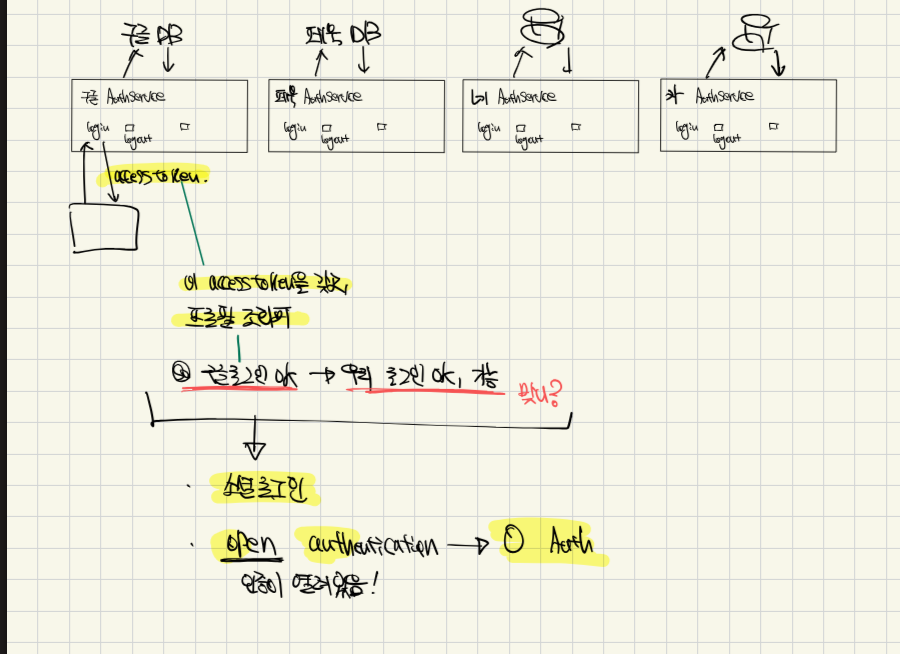 구글 DB
페북 DB
구글 AuthService
login
logout
페북 AuthService
login
logout
네 AuthService
login
logout
카 AuthService
login
logout
access token.
이 access token을 갖고,
프로필 조회
구글 로그인 OK → 우리 로그인 OK, 가능
맞니?
· 소셜로그인
· open authentication → O Auth
인증이 열려있음!